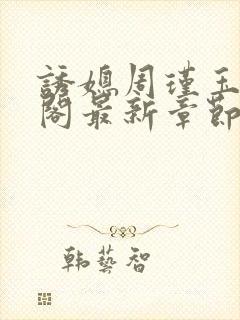 誘媳周瑾玉
閣最新章節
韩藝智